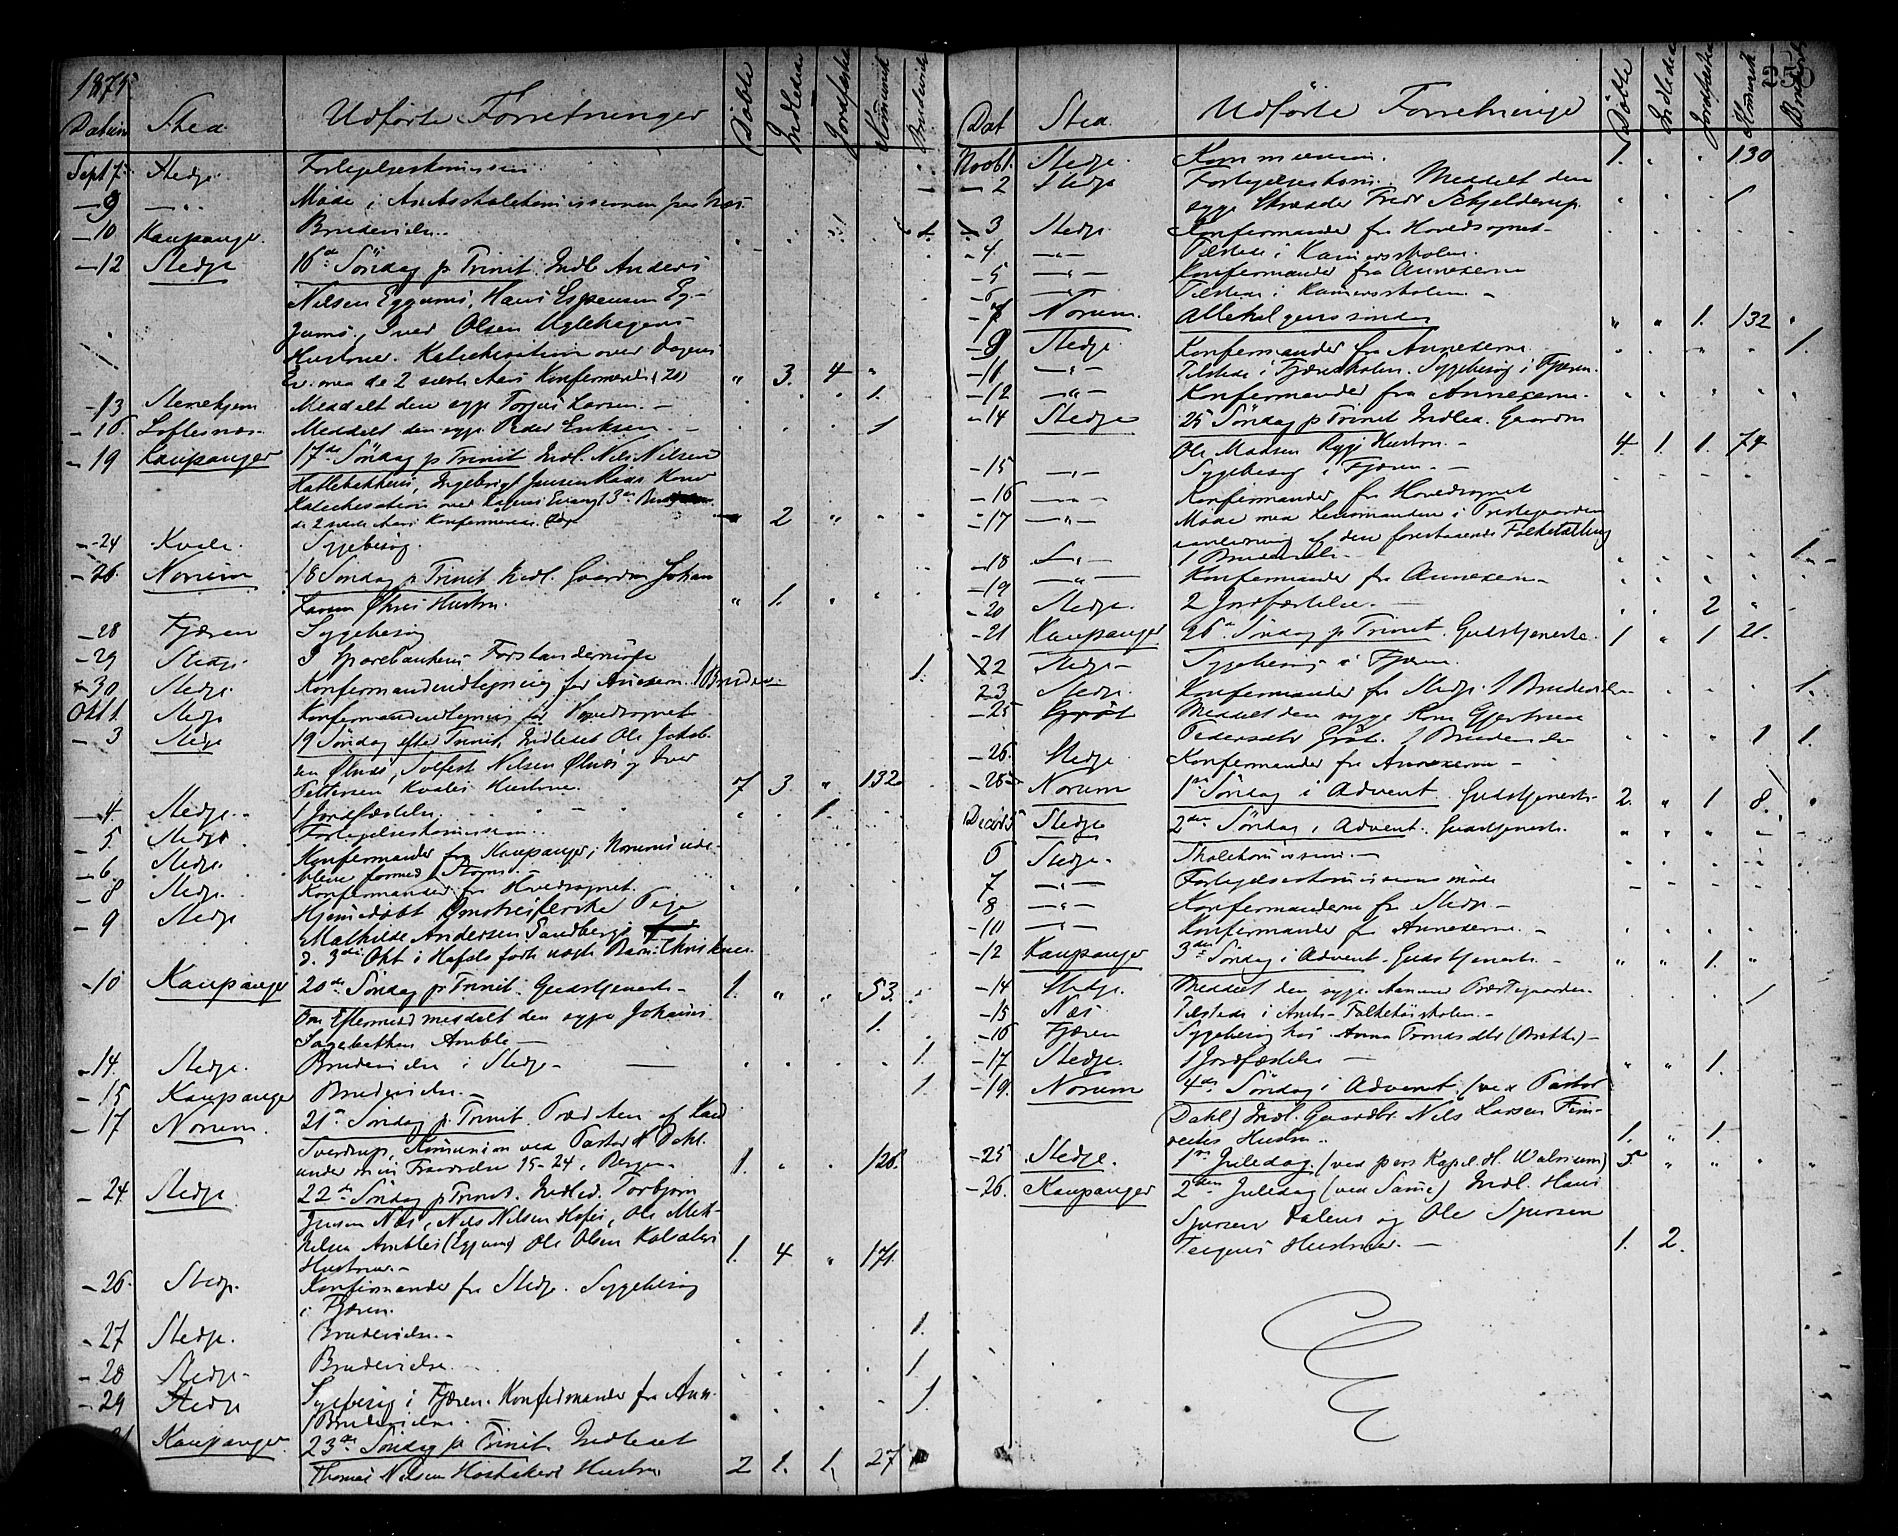 1875
Datum Sted Udførte Forretninger Døbte Indledte Jordfæstede Kommunik Brudevielse
Sept 7 Stedje Forligelseskomission
- 9 — " Møde i Amtsskolekomissionen paa Næs
- 10 Kaupanger Brudevielse 1.
- 12 Stedje 16de Søndag p Trinit. Indl. Anders
Nilsen Eggums, Hans Espensen Eg-
gums, Iver Olsen Uglehagens
Hustruer. Katechisation over Dagens
Ev. med de 2 sidste Aars Konfirmerede (20) " 3. 4 "
- 13 Stenehjem Meddelt den syge Torgus Larsen. 1.
- 16 Loftesnæs Meddelt den syge Peder Eriksen. 1
- 19 Kaupanger 17de Søndag p Trinit. Indl. Nils Nilsen
Hattebakkens, Ingebrigt Jensen Kone
Katechisation over Dagens Evang.
de 2 sidste Aars Konfirmerede. 2 "
- 24 Kvale Sygebesøg.
- 26. Norum 18 Søndag p Trinit. Indl. Gaardm Johan
Larsen Ølnes Hustru. " 1.
- 28 Fjæren Sygebesøg
- 29 Stedje I Sparebankens Forstandermøde
- 30 Stedje Konfirmandudlysning for Annexern. 1 Brudev. 1.
Okt 1. Stedje Konfirmandudlysning for Hovedsognet
- 3 Stedje 19 Søndag efter Trinit. Indledet Ole Jakob-
sen Ølnes, Solfest Nilsen Ølnes og Iver
Pettersen Kvales Hustruer. 7 3 " 132
- 4 Stedje 1 Jordfæstelse. 1.
- 5 Stedje Forligelseskomission.
- 6. Stedje Konfirmander fra Kaupanger; Norums ude-
bleve formed. Storm.
- 8 Stedje Konfirmander fra Hovedsognet.
- 9 Stedje Hjemmedøbt Omstreiferske Pige
Mathilde Andersen Sandbergs
d. 3die Okt i Hafslo fødte uægte Barn: Christian
- 10 Kaupanger 20de Søndag p Trinit. Gudstjeneste 1. " " 53.
Om Eftermidd meddelt den syge Johannes
Amble 1.
- 14. Stedje. Brudevielse i Stedje 1.
- 15 Kaupanger Brudevielse. 1.
- 17 Norum. 21de Søndag p. Trinit. Præd ten af Kand
Sverdrup, Komunion ved Pastor Dahl.
under min Fraværelse 15-24 i Bergen. 1. 126.
- 24. Stedje. 22de Søndag p Trinit. Indled. Torbjørn
Jensen Næs, Nils Nilsen Hofes, Ole Mik-
kelsen Ambles (Eggum) Ole Olsen
Hustruer. 1. 4 " 171.
- 26. Stedje. Konfirmander fra Stedje. Sygebesøg
i Fjæren.
- 27 Stedje. Brudevielse. 1.
- 28 Stedje Brudevielse. 1
- 29 Stedje Sygebesøg i Fjæren. Konfirmander fra Ann.
1 Brudevielse. 1.
Kaupanger. 23de Søndag p Trinit. Indledet
Thomas Nilsen Hustru 2 1. 1. 27
250
Dat Sted. Udførte Forretninge Døbte Indledede Jordfæste Komunik
Novb 1. Stedje. Kommunion. 1. 130
- 2 Stedje Forligelseskom. Meddelt den
syge Skrædder Fredr Schjelderup.
- 3 Stedje Konfirmander fra Hovedsognet
- 4 — " — Tilstede i Kredsskolen.
- 5 — " — Konfirmander fra Annexerne
- 6 — " — Tilstede i
- 7 Norum. Allehelgenssøndag " " 1. 132 "
- 9 Stedje. Konfirmander fra Annexerne 1.
- 11 — " — Tilstede i Fjærenskolen. Sygebesøg i Fjæren.
- 12 — " — Konfirmander fra Annexerne.
- 14 Stedje 25 Søndag p Trinit Indled. Gaardm
Ole Madsen Rygg Hustru. 4 1. 1. 74
- 15 — " — Sygebesøg i Fjæren.
- 16 — " — Konfirmander fra Hovedsognet
- 17 — " — Møde med Lensmanden i Præstegaarden
anledning af den forestaaende Folketælling
- 18 — " — 1 Brudevielse 1.
- 19 — " — Konfirmander fra Annexern
- 20 Stedje. 2 Jordfæstelse. 2
- 21 Kaupanger 26de Søndag p Trinit. Gudstjeneste. 1 " 1 21.
22 Stedje Sygebesøg i Fjæren.
23 Stedje. Konfirmander fra Stedje. 1 Brudevielse 1.
- 25 Grøt Meddelt den syge Kone Gjertrud
Pedersdtr Grøt. 1 Brudevielse 1 1.
- 26. Stedje. Konfirmander fra Annexerne
- 28 Norum 1ste Søndag i Advent. Gudstjeneste. 2. " 1 8.
Decbr 5 Stedje 2den Søndag i Advent. Gudstjeneste.
6 Stedje. Skolekomission.
7 — " — Forligelseskomissions møde
8 — " — Konfirmanderne fra Stedje
- 10 — " — Konfirmander fra Annexerne.
- 12 Kaupanger 3die Søndag i Advent. Gudstjeneste. " " 1.
- 14 Stedje. Meddelt den syge Præstegaarden. 1
- 15 Næs Tilstede i Amts-Folkehøiskolen.
- 16 Fjæren Sygebesøg hos Anna Tronsdtr (Bratte)
- 17 Stedje. 1 Jordfæstelse " " 1.
- 19. Norum 4de Søndag i Advent (ved Pastor
Dahl) Indl. Gaardbr. Nils Larsen Fim-
reites Hustru. 1. " 1.
- 25 Stedje. 1ste Juledag. (ved pers Kapel. H. Walnum) 5.
- 26. Kaupanger 2den Juledag (ved Samme) Indl. Hans
Sjursen Dalens og Ole Sjursen
Teigens Hustruer. 1. 2.